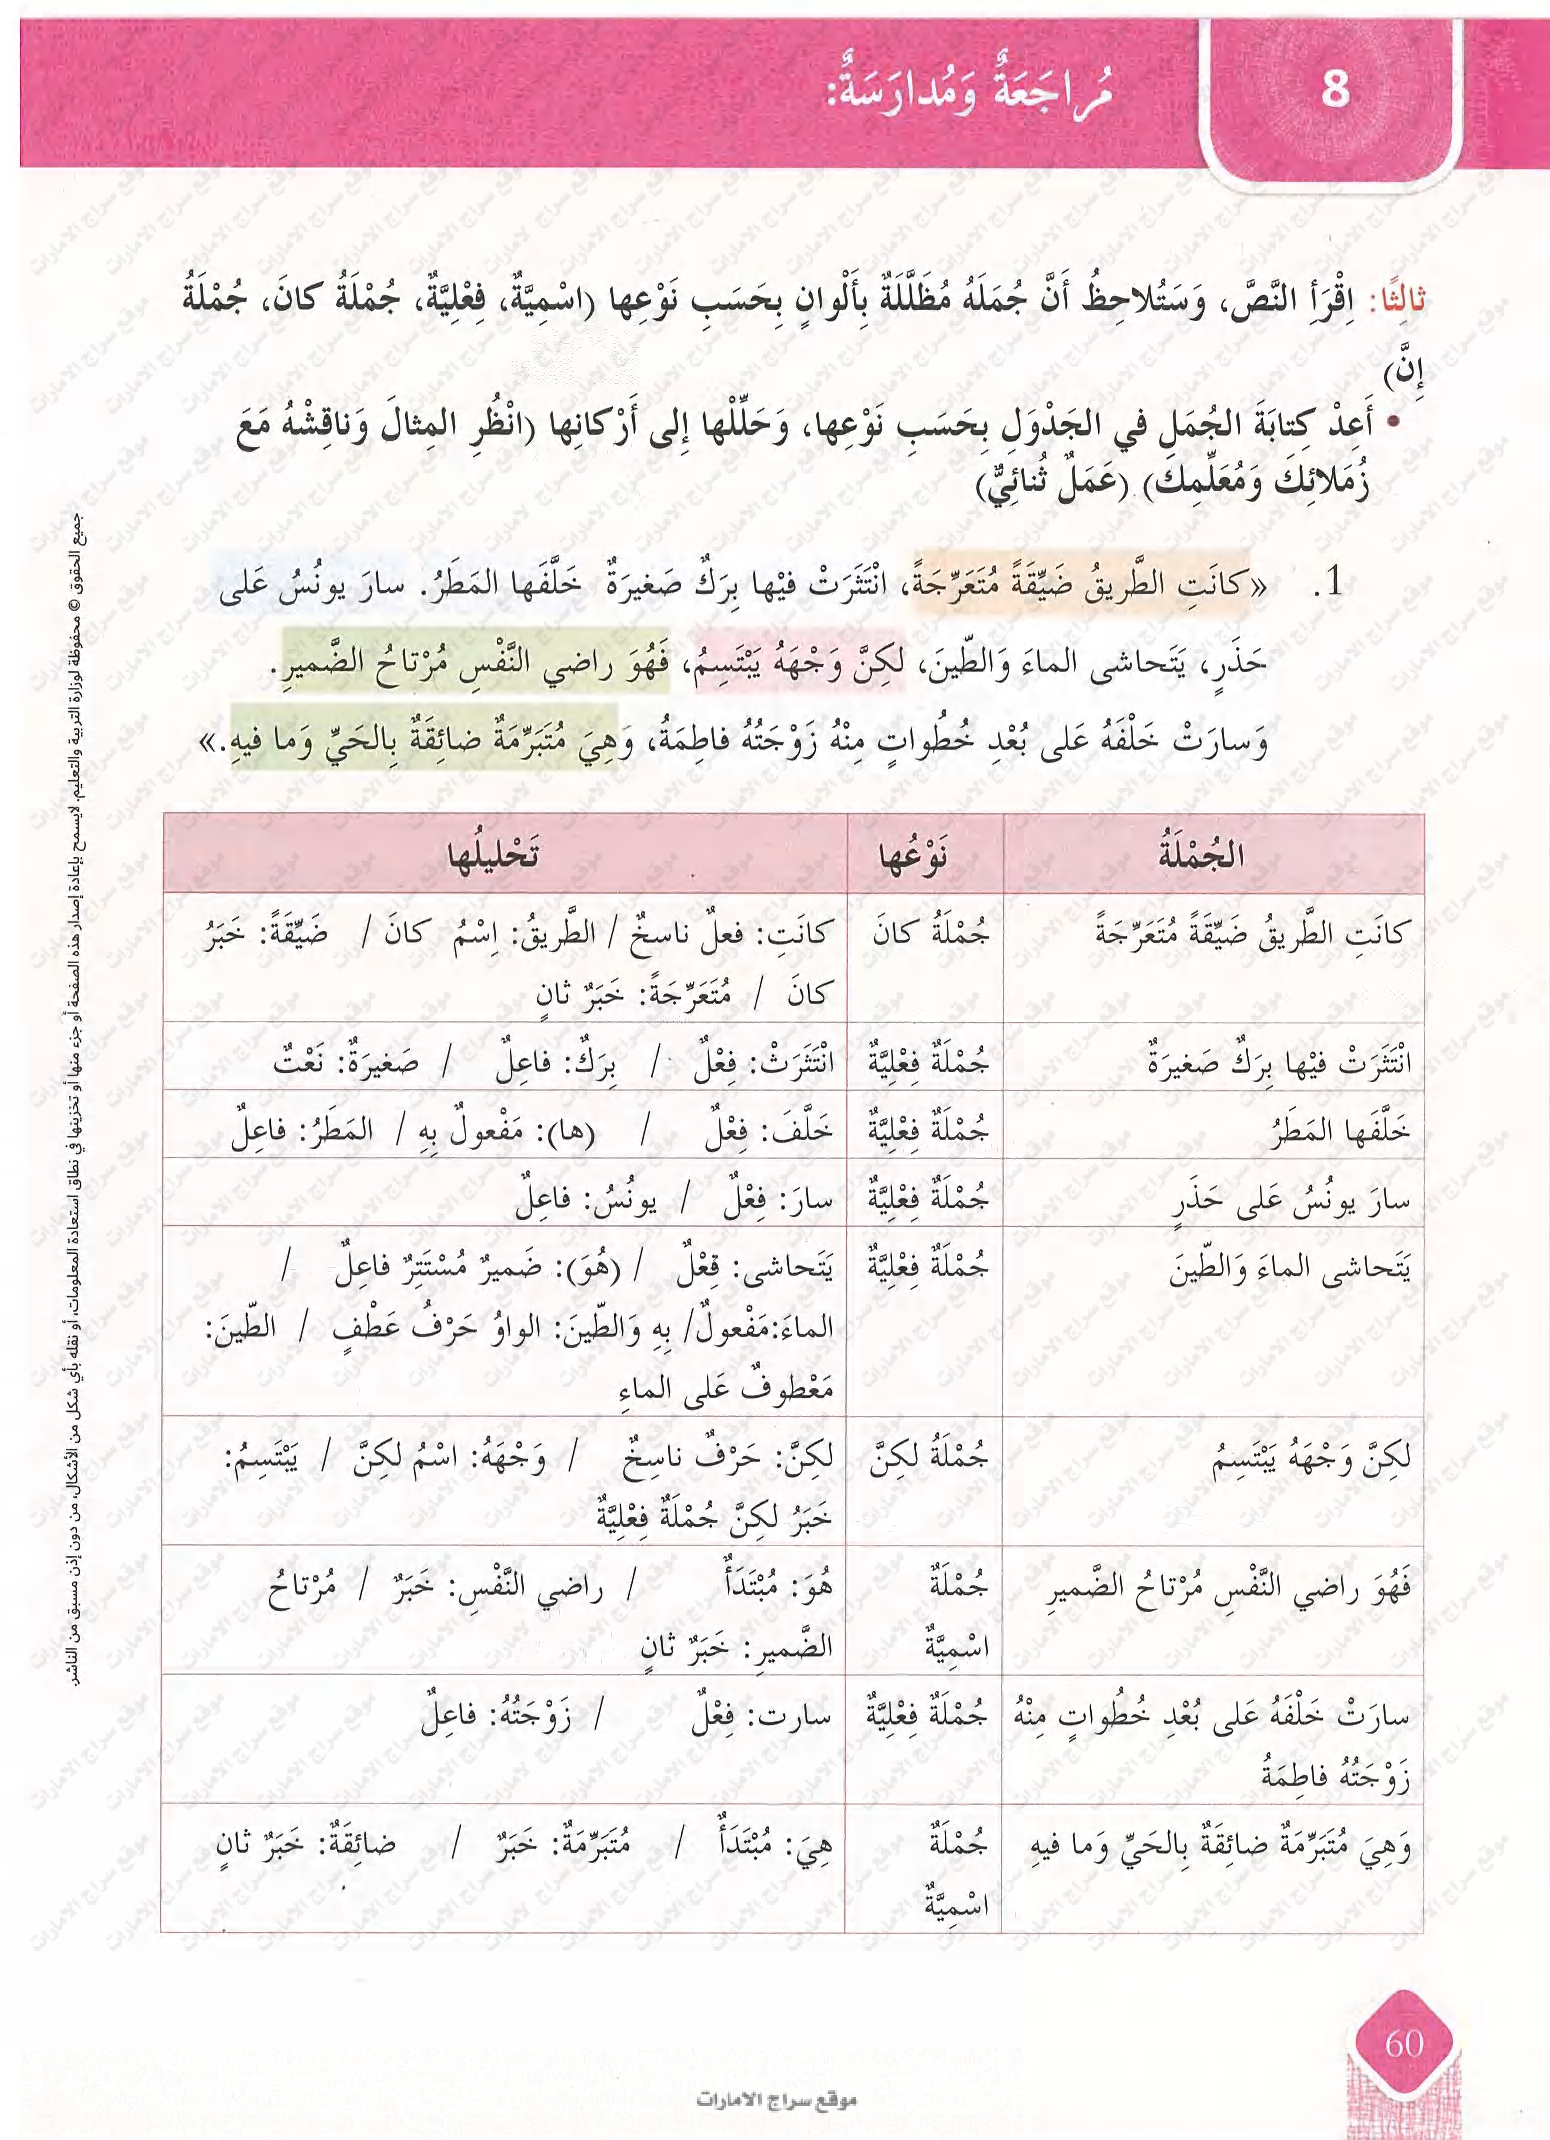 8
مُراجَعَةٌ وَمُدارَسَةٌ:
ثالِثًا: اِقْرَأِ النَّصَّ، وَسَتُلاحِظُ أَنَّ جُمَلَهُ مُظَلَّلَةٌ بِأَلْوانٍ بِحَسَبِ نَوْعِها (اسْمِيَّةٌ، فِعْلِيَّةٌ، جُمْلَةُ كانَ، جُمْلَةُ
إِنَّ)
• أَعِدْ كِتابَةَ الجُمَلِ في الجَدْوَلِ بِحَسَبِ نَوْعِها، وَحَلِّلْها إِلى أَرْكانِها (انْظُرِ المِثالَ وَناقِشْهُ مَعَ
زُمَلائِكَ وَمُعَلِّمِكَ) (عَمَلٌ ثُنائِيٌّ)
1. «كانَتِ الطَّريقُ ضَيِّقَةً مُتَعَرِّجَةً، انْتَثَرَتْ فيْها بِرَكٌ صَغيرَةٌ خَلَّفَها المَطَرُ. سارَ يونُسُ عَلى
حَذَرٍ، يَتَحاشى الماءَ وَالطّينَ، لكِنَّ وَجْهَهُ يَبْتَسِمُ، فَهُوَ راضي النَّفْسِ مُرْتاحُ الضَّميرِ.
وَسارَتْ خَلْفَهُ عَلى بُعْدِ خُطُواتٍ مِنْهُ زَوْجَتُهُ فاطِمَةُ، وَهِيَ مُتَبَرِّمَةٌ ضائِقَةٌ بِالحَيِّ وَما فيهِ.»
الجُمْلَةُ نَوْعُها تَحْليلُها
كانَتِ الطَّريقُ ضَيِّقَةً مُتَعَرِّجَةً جُمْلَةُ كانَ كانَتِ: فعلٌ ناسخٌ / الطَّريقُ: اِسْمُ كانَ / ضَيِّقَةً: خَبَرُ
كانَ / مُتَعَرِّجَةً: خَبَرٌ ثانٍ
انْتَثَرَتْ فيْها بِرَكٌ صَغيرَةٌ جُمْلَةٌ فِعْلِيَّةٌ انْتَثَرَتْ: فِعْلٌ / بِرَكٌ: فاعِلٌ / صَغيرَةٌ: نَعْتٌ
خَلَّفَها المَطَرُ جُمْلَةٌ فِعْلِيَّةٌ خَلَّفَ: فِعْلٌ / (ها): مَفْعولٌ بِهِ / المَطَرُ: فاعِلٌ
سارَ يونُسُ عَلى حَذَرٍ جُمْلَةٌ فِعْلِيَّةٌ سارَ: فِعْلٌ / يونُسُ: فاعِلٌ
يَتَحاشى الماءَ وَالطّينَ جُمْلَةٌ فِعْلِيَّةٌ يَتَحاشى: فِعْلٌ / (هُوَ): ضَميرٌ مُسْتَتِرٌ فاعِلٌ /
الماءَ:مَفْعولٌ/ بِهِ وَالطّينَ: الواوُ حَرْفُ عَطْفٍ / الطّينَ:
مَعْطوفٌ عَلى الماءِ
لكِنَّ وَجْهَهُ يَبْتَسِمُ جُمْلَةُ لكِنَّ لكِنَّ: حَرْفٌ ناسِخٌ / وَجْهَهُ: اسْمُ لكِنَّ / يَبْتَسِمُ:
خَبَرُ لكِنَّ جُمْلَةٌ فِعْلِيَّةٌ
فَهُوَ راضي النَّفْسِ مُرْتاحُ الضَّميرِ جُمْلَةٌ هُوَ: مُبْتَدَأٌ / راضي النَّفْسِ: خَبَرٌ / مُرْتاحُ
اسْمِيَّةٌ الضَّميرِ: خَبَرٌ ثانٍ
سارَتْ خَلْفَهُ عَلى بُعْدِ خُطُواتٍ مِنْهُ جُمْلَةٌ فِعْلِيَّةٌ سارت: فِعْلٌ / زَوْجَتُهُ: فاعِلٌ
زَوْجَتُهُ فاطِمَةُ
وَهِيَ مُتَبَرِّمَةٌ ضائِقَةٌ بِالحَيِّ وَما فيهِ جُمْلَةٌ هِيَ: مُبْتَدَأٌ / مُتَبَرِّمَةٌ: خَبَرٌ / ضائِقَةٌ: خَبَرٌ ثانٍ
اسْمِيَّةٌ
جميع الحقوق © محفوظة لوزارة التربية والتعليم. لايسمح بإعادة إصدار هذه الصفحة أو جزء منها أو تخزينها في نطاق استعادة المعلومات، أو نقله بأي شكل من الأشكال، من دون إذن مسبق من الناشر.
60
موقع سراج الامارات